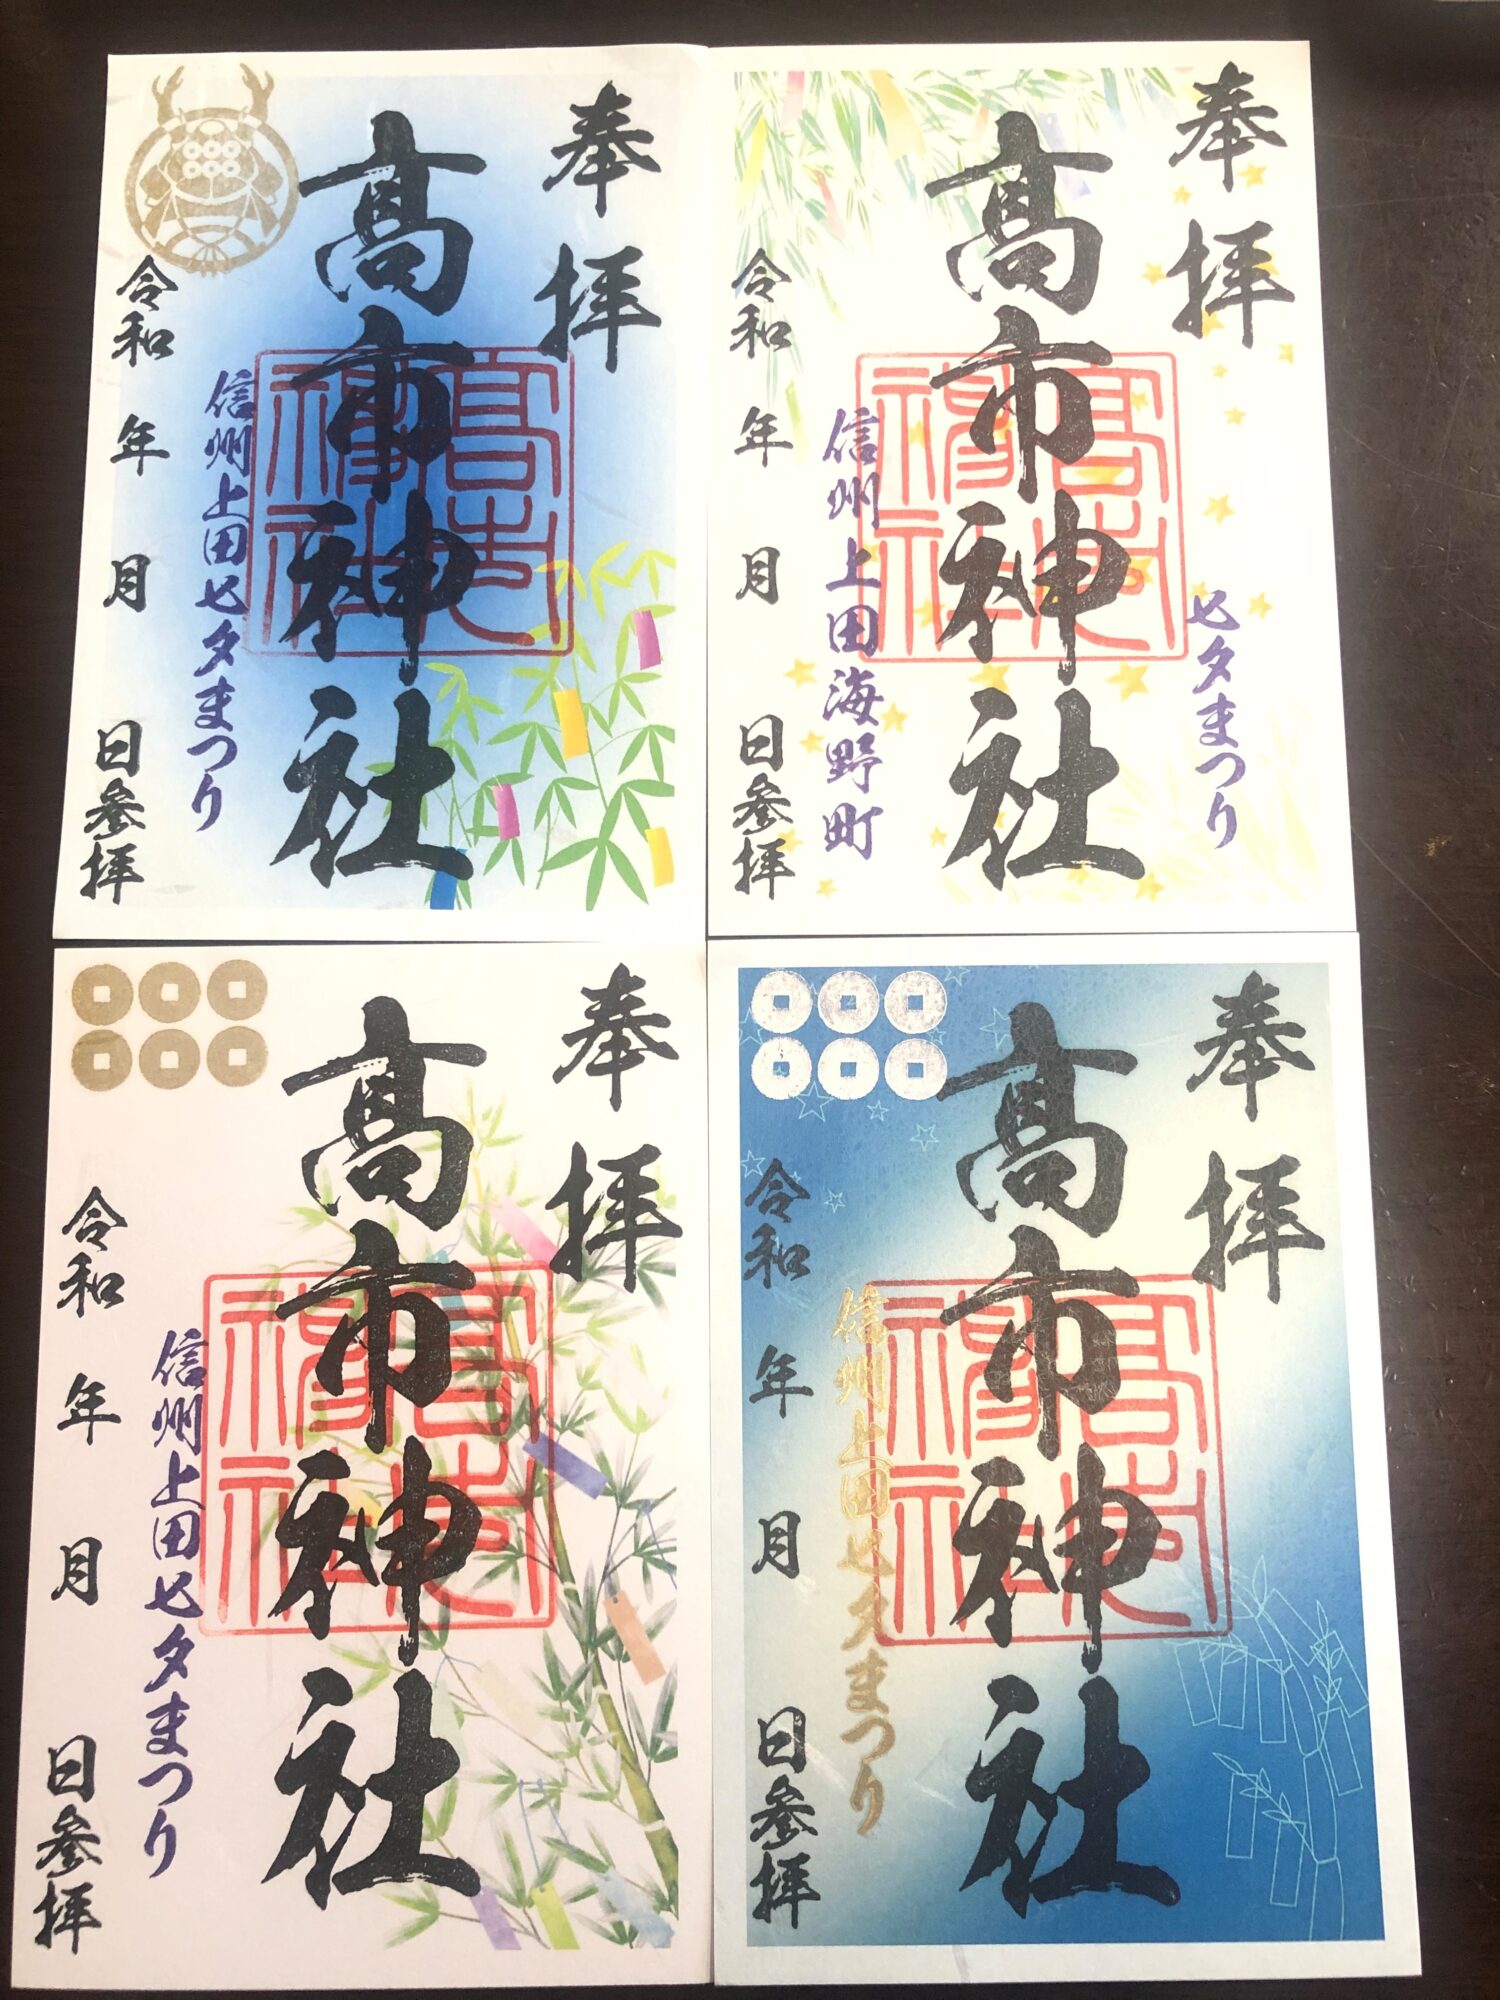 奉拝
髙市神社
信州上田七夕まつり
令和 年 月 日参拝
奉拝
七夕まつり
髙市神社
信州上田海野町
令和 年 月 日参拝
奉拝
髙市神社
信州上田七夕まつり
令和 年 月 日参拝
奉拝
髙市神社
信州上田七夕まつり
令和 年 月 日参拝